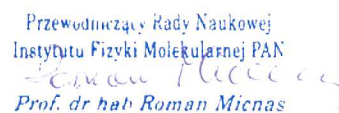 Przewodniczący Rady Naukowej
Instytutu Fizyki Molekularnej PAN
Roman Micnas
Prof. dr hab Roman Micnas